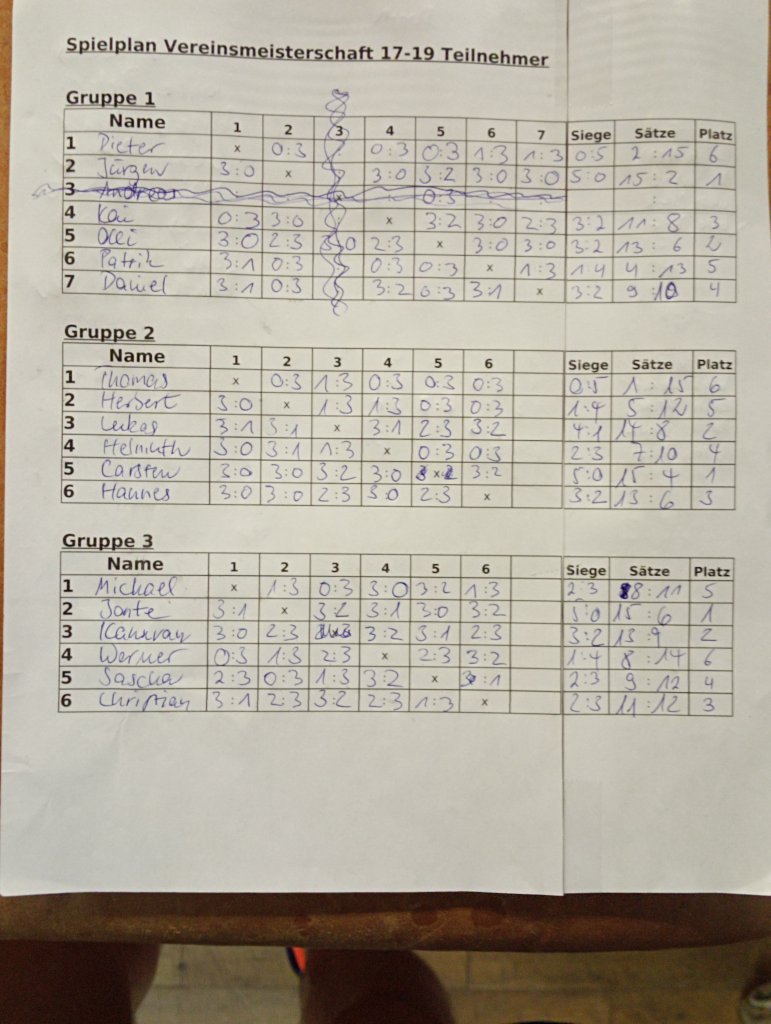 Spielplan Vereinsmeisterschaft 17-19 Teilnehmer
Gruppe 1
Name 1 2 3 4 5 6 7 Siege Sätze Platz
1 Dieter x 0:3 0:3 0:3 1:3 1:3 0:5 2:15 6
2 Jürgen 3:0 x 3:0 3:2 3:0 3:0 5:0 15:2 1
3 Andreas x 0:3 :
4 Kai 0:3 3:0 x 3:2 3:0 2:3 3:2 11:8 3
5 Olli 3:0 2:3 3:0 2:3 x 3:0 3:0 3:2 13:6 2
6 Patrik 3:1 0:3 0:3 0:3 x 1:3 1:4 4:13 5
7 Daniel 3:1 0:3 3:2 0:3 3:1 x 3:2 9:10 4
Gruppe 2
Name 1 2 3 4 5 6 Siege Sätze Platz
1 Thomas x 0:3 1:3 0:3 0:3 0:3 0:5 1:15 6
2 Herbert 3:0 x 1:3 1:3 0:3 0:3 1:4 5:12 5
3 Lukas 3:1 3:1 x 3:1 2:3 3:2 4:1 14:8 2
4 Helmuth 3:0 3:1 1:3 x 0:3 0:3 2:3 7:10 4
5 Carsten 3:0 3:0 3:2 3:0 x 3:2 5:0 15:4 1
6 Hannes 3:0 3:0 2:3 3:0 2:3 x 3:2 13:6 3
Gruppe 3
Name 1 2 3 4 5 6 Siege Sätze Platz
1 Michael x 1:3 0:3 3:0 3:2 1:3 2:3 8:11 5
2 Jonte 3:1 x 3:2 3:1 3:0 3:2 5:0 15:6 1
3 3:0 2:3 3:2 3:1 2:3 3:2 13:9 2
4 Werner 0:3 1:3 2:3 x 2:3 3:2 1:4 8:14 6
5 Sascha 2:3 0:3 1:3 3:2 x 3:1 2:3 9:12 4
6 Christian 3:1 2:3 3:2 2:3 1:3 x 2:3 11:12 3